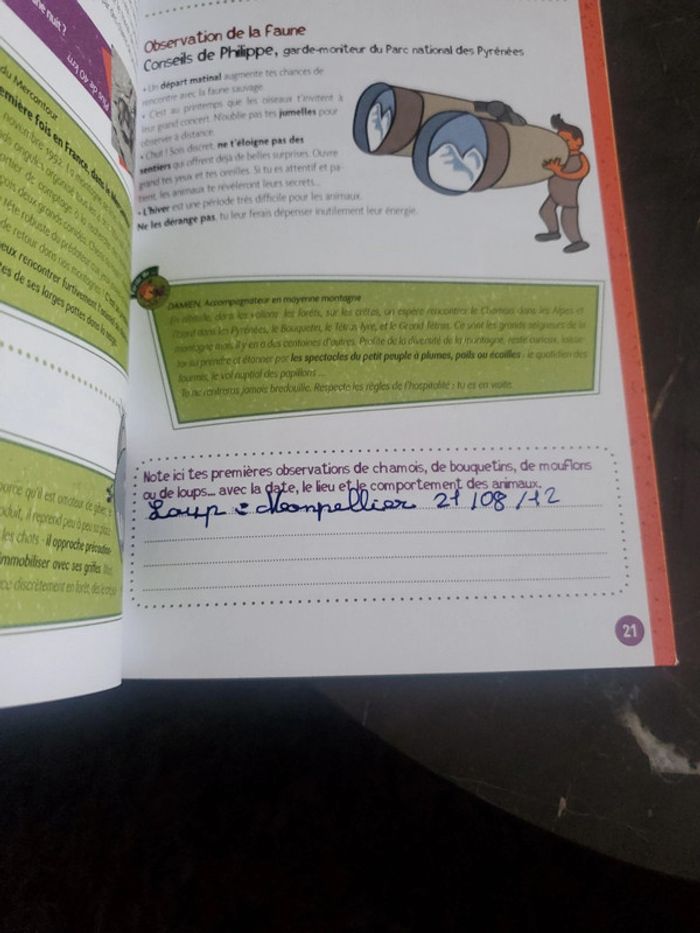 une nuit ?
Plus de 40 km
du Mercantour
première fois en France, dans le
novembre 1992.
de retour dans nos montagnes
eux rencontrer furtivement l'animal
de ses larges pattes dans la neige.
qu'il est amateur de gibier,
il reprend peu à peu sa place
les chats : il approche
immobiliser avec ses griffes
discrètement en forêt,
Observation de la faune
Conseils de Philippe, garde-moniteur du Parc national des Pyrénées
• Un départ matinal augmente tes chances de
rencontre avec la faune sauvage.
• C'est au printemps que les oiseaux t'invitent à
leur grand concert. N'oublie pas tes jumelles pour
observer à distance.
• Chut ! Sois discret, ne t'éloigne pas des
sentiers qui offrent déjà de belles surprises. Ouvre
grand tes yeux et tes oreilles. Si tu es attentif et pa-
tient, les animaux te révèleront leurs secrets...
• L'hiver est une période très difficile pour les animaux.
Ne les dérange pas, tu leur ferais dépenser inutilement leur énergie.
DAMIEN, Accompagnateur en moyenne montagne
En altitude, dans les vallons, les forêts, sur les crêtes, on espère rencontrer le Chamois dans les Alpes et
l'Isard dans les Pyrénées, le Bouquetin, le Tétras lyre, et le Grand Tétras. Ce sont les grands seigneurs de la
montagne mais il y en a des centaines d'autres. Profite de la diversité de la montagne, reste curieux, laisse-
toi surprendre et étonner par les spectacles du petit peuple à plumes, poils ou écailles : le quotidien des
fourmis, le vol nuptial des papillons ...
Tu ne rentreras jamais bredouille. Respecte les règles de l'hospitalité : tu es en visite.
Note ici tes premières observations de chamois, de bouquetins, de mouflons
ou de loups... avec la date, le lieu et le comportement des animaux.
Loup : Monpellier 21/08/12
21